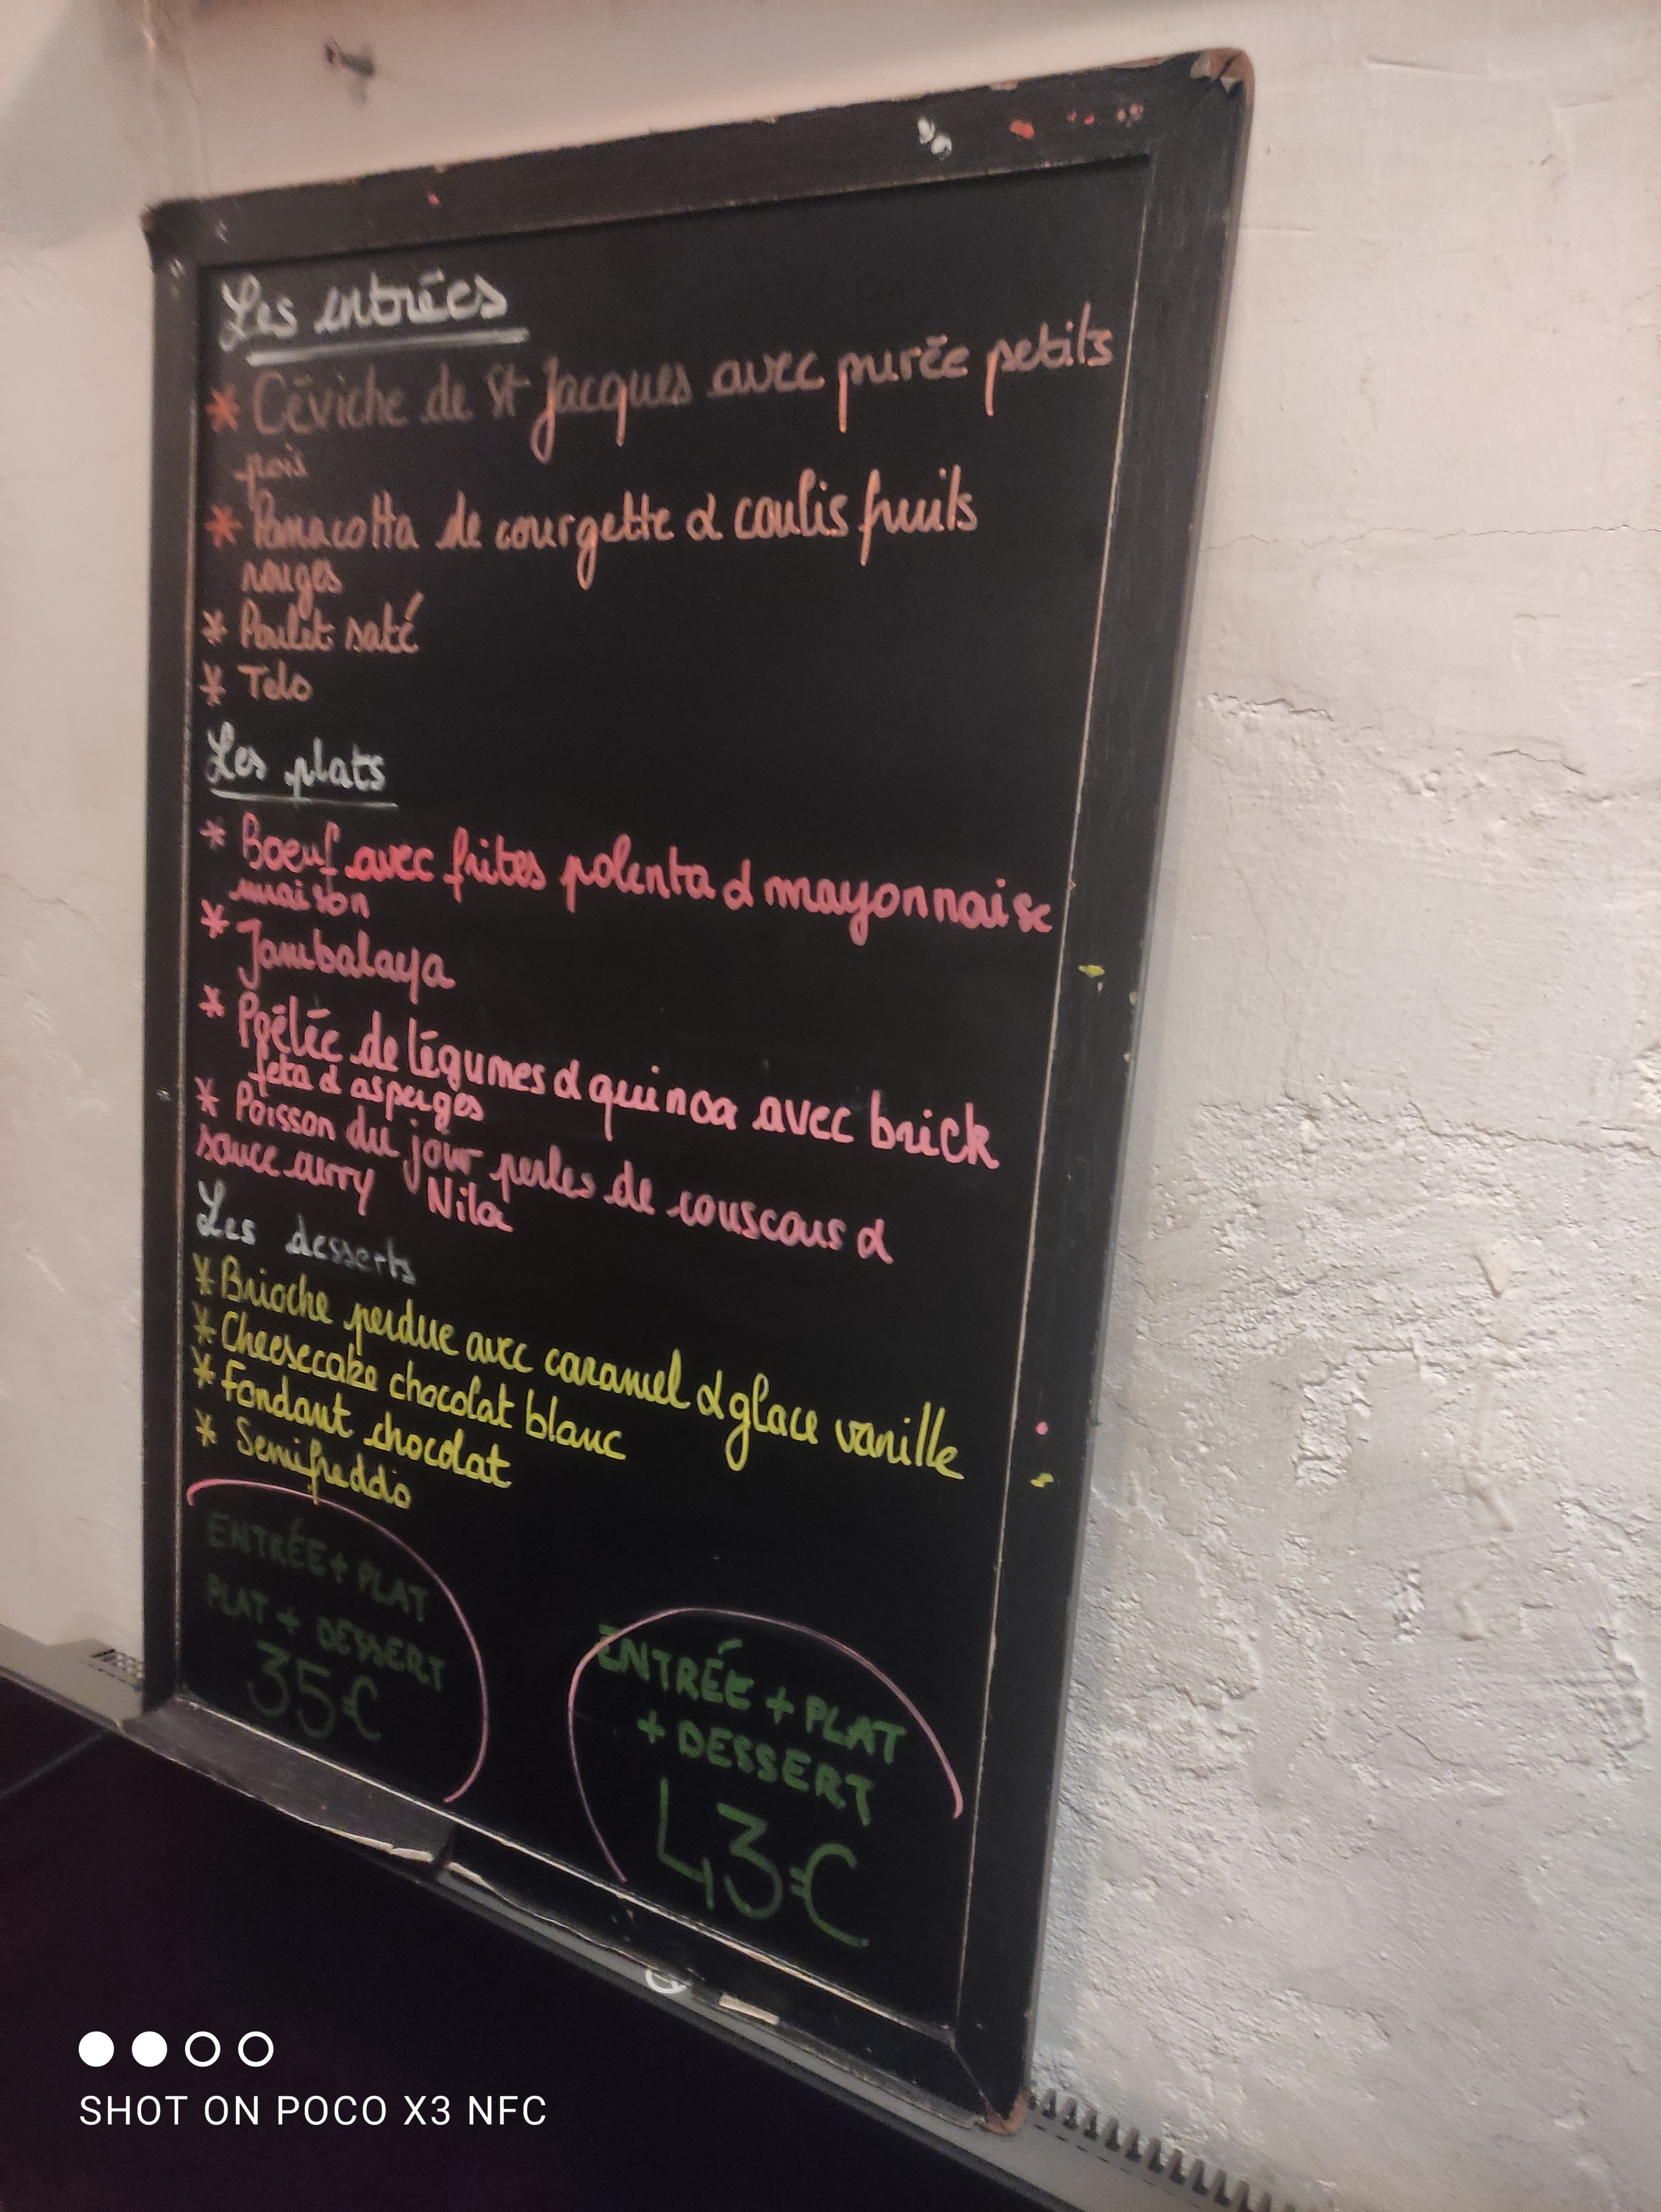 Les entrées
* Céviche de St Jacques avec purée petits
pois
* Panacotta de courgette & coulis fruits
rouges
* Poulet saté
* Telo
Les plats
* Boeuf avec frites polenta & mayonnaise
maison
* Jambalaya
* Poêlée de légumes & quinoa avec brick
feta & asperges
* Poisson du jour perles de couscous &
sauce curry Nila
Les desserts
* Brioche perdue avec caramel & glace vanille
* Cheesecake chocolat blanc
* Fondant chocolat
* Semifreddo
ENTRÉE + PLAT
PLAT + DESSERT
35€
ENTRÉE + PLAT
+ DESSERT
43€
SHOT ON POCO X3 NFC